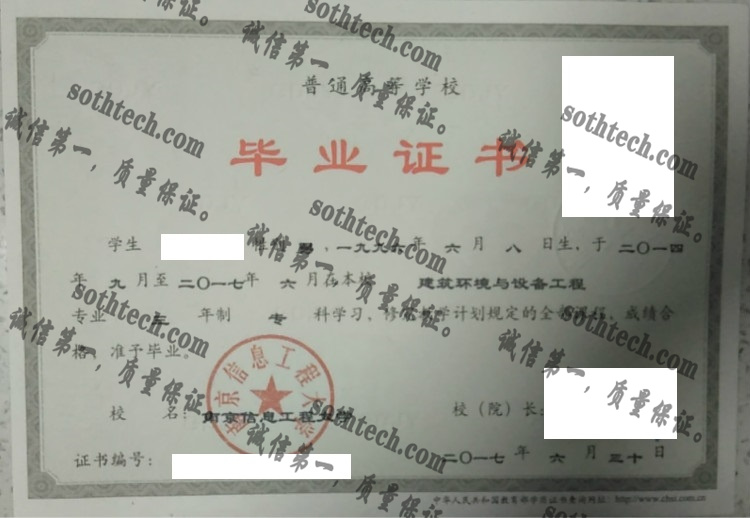 普通高等学校
毕业证书
学生 性别 男，一九九六年 六 月 八 日生，于 二〇一四
年 九 月至 二〇一七年 六 月在本校 建筑环境与设备工程
专业 三 年制 专 科学习，修完教学计划规定的全部课程，成绩合
格，准予毕业。
校 名：南京信息工程大学
校（院）长：
证书编号：
二〇一七 年 六 月 三十日
中华人民共和国教育部学历证书查询网址：http://www.chsi.com.cn
南京信息工程大学
sothtech.com
诚信第一，质量保证。
sothtech.com
诚信第一，质量保证。
sothtech.com
诚信第一，质量保证。
sothtech.com
诚信第一，质量保证。
sothtech.com
诚信第一，质量保证。
sothtech.com
诚信第一，质量保证。
sothtech.com
诚信第一，质量保证。
sothtech.com